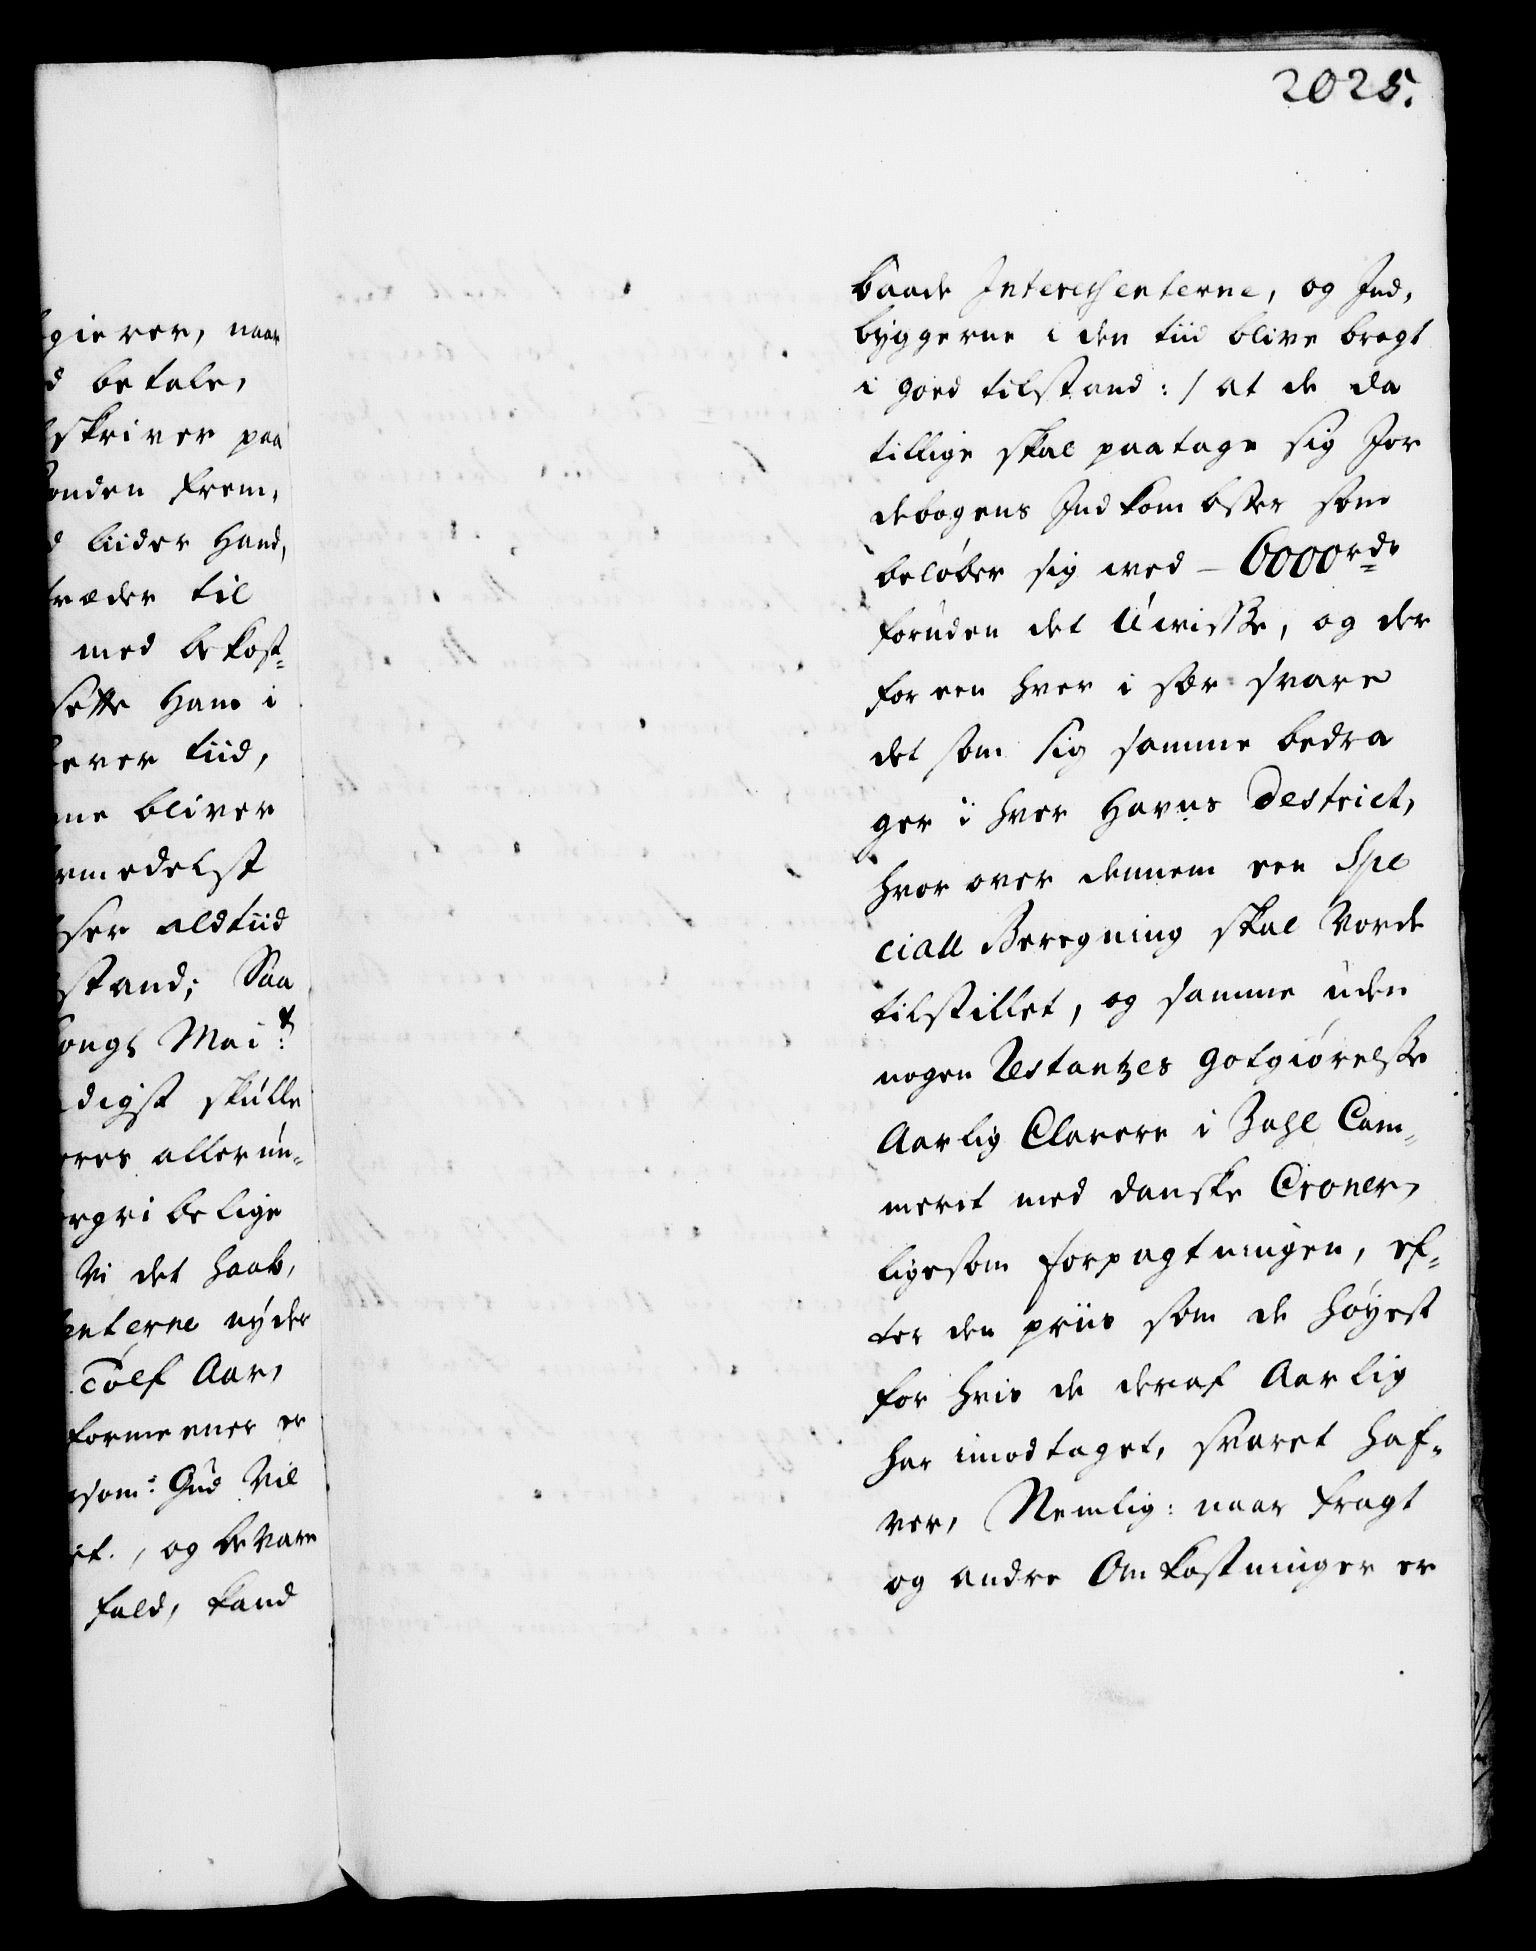 2025.
gierer, naar
d betale,
skriver paa
onden frem,
d liider Hand,
træder til
med bekost=
sette Ham i
ever tiid,
ne bliver
rmedelst
ser aldtiid
stand; Saa
ongl Mai:t
digst skulle
eres allerun=
rgribelige
Vi det haab,
enterne nyder
Tolf Aar,
formeener er
som: Gud Vil
et., og bevare
fald, kand
baade Interessenterne, og Ind,
byggerne i den tiid blive bragt
i goed tilstand :/ at de da
tillige skal paatage sig Jor
debogens Indkombster som
beløber sig wed – 6000 rdr
foruden det Uwisse, og der
for een hver i sær svare
det som sig samme bedra
ger i hver Havns District,
hvor over dennem een Spe
ciall Beregning skal Vorde
tilstillet, og samme uden
nogen Restantzes godgiørelse
Aarlig Clarere i Zahl Cam=
meret med danske Croner,
ligesom forpagtningen, ef=
ter den priis som de høyest
for hvis de deraf Aarlig
har imodtaget, svaret haf=
ver, Nemlig: naar fragt
og andre Omkostninger er